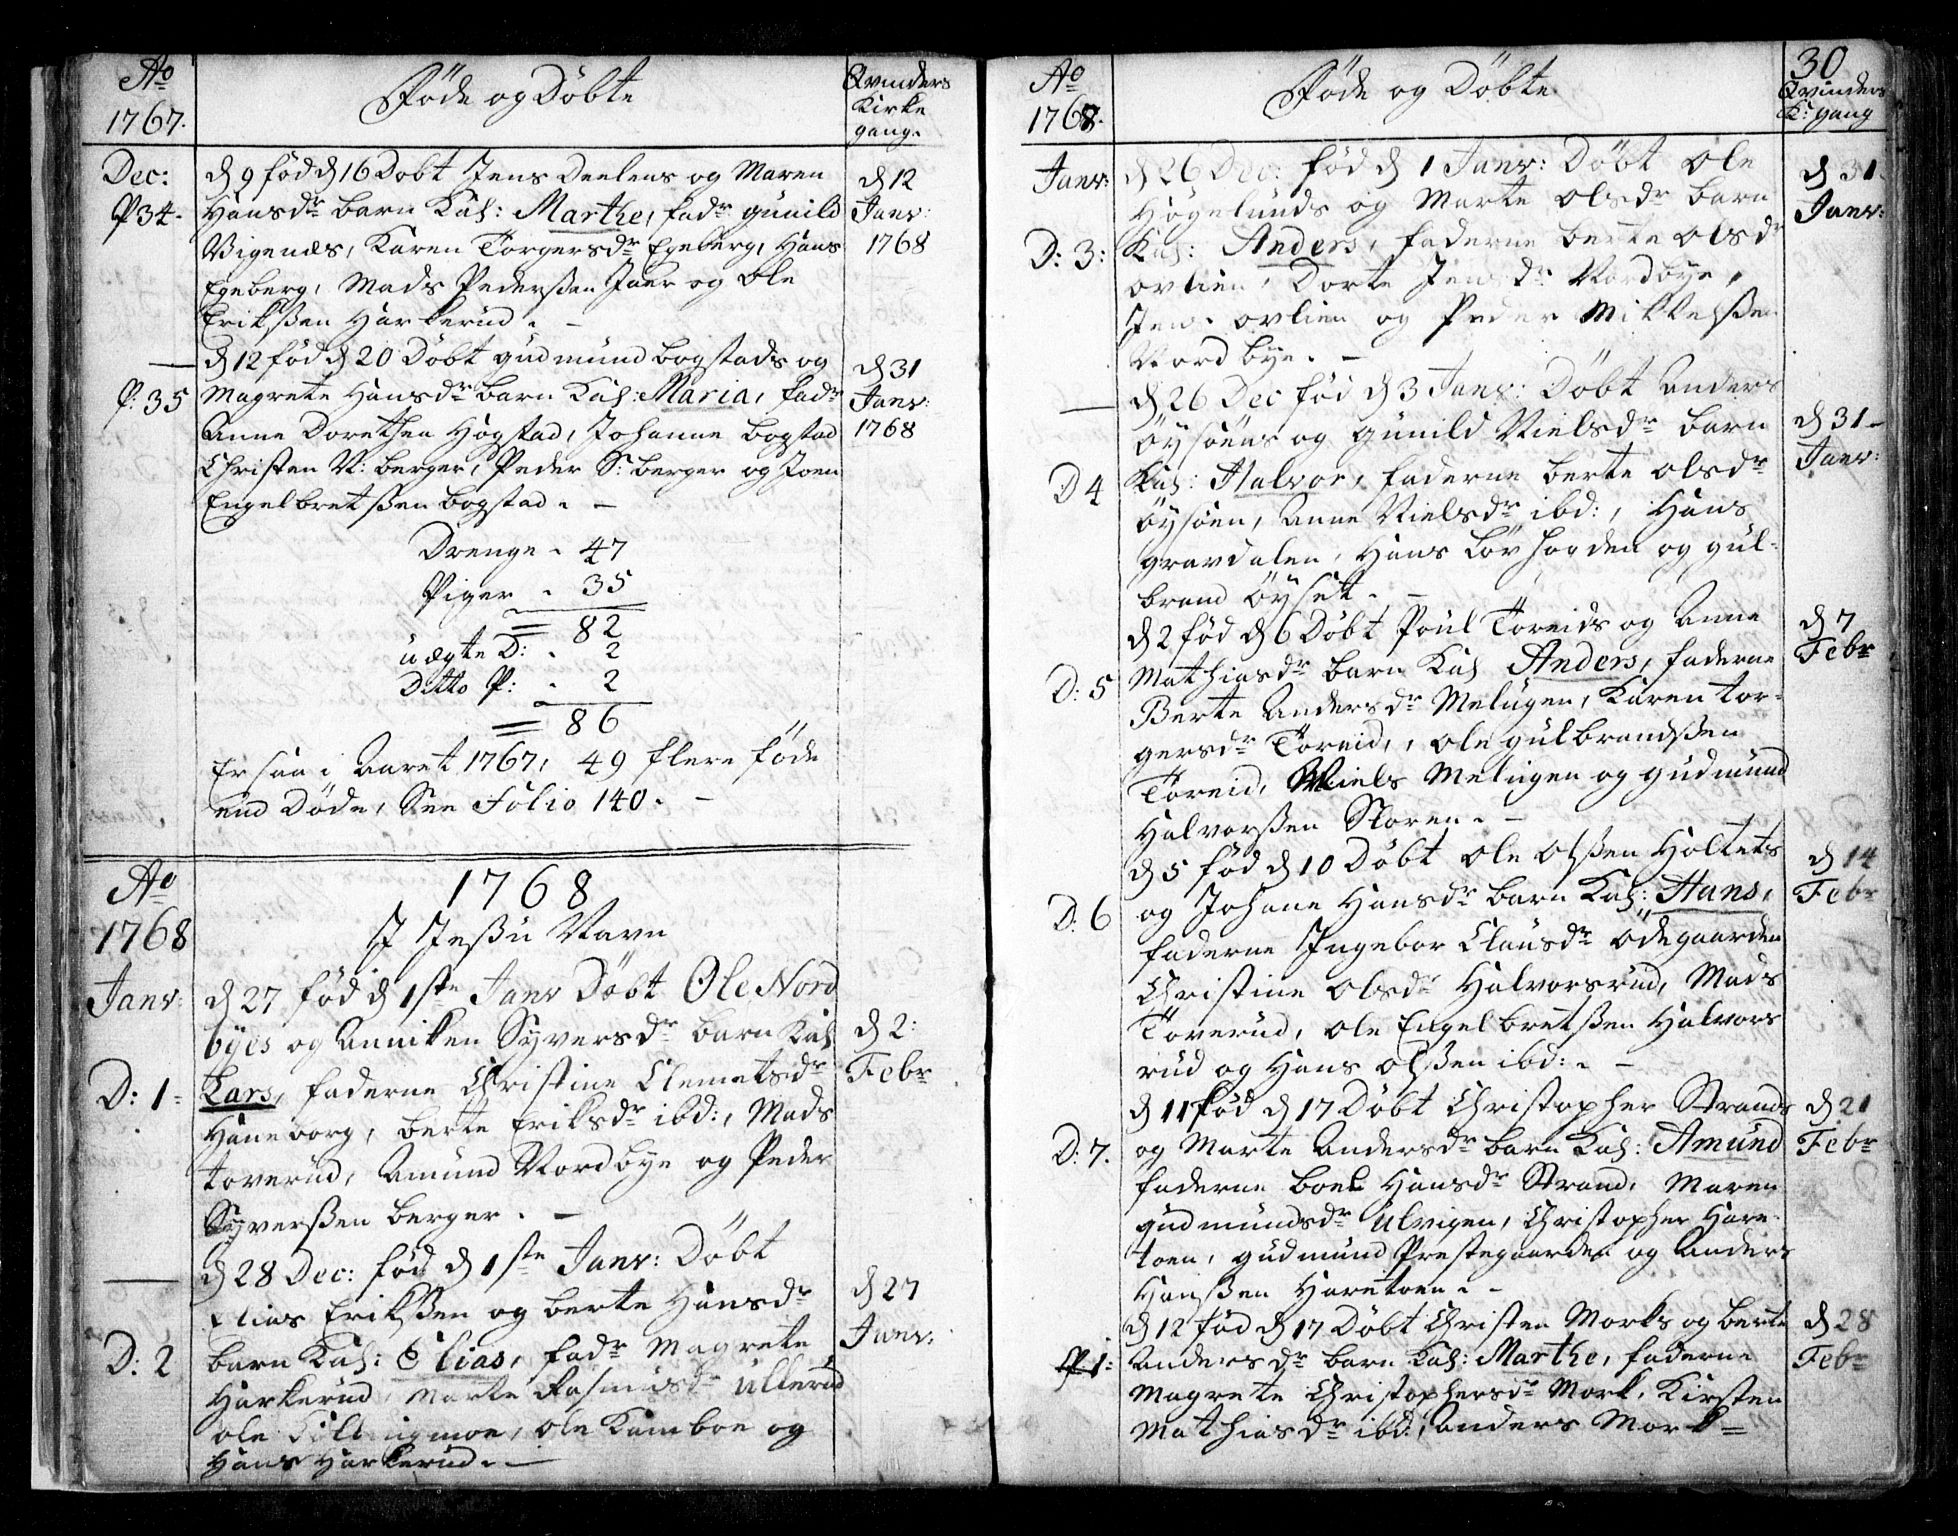 Aº
1767.
Föde og Döbte
Qvinders
Kirke
gang.
Dec:
P 34.
d 9 föd d 16 Dobt Jens Deelens og Maren
Hansdr barn Kal: Marthe, fadr gunild
Vigenæs, Karen Torgersdr Egeberg, Hans
Egeberg, Mads Pederßen Juer og Ole
Erikßen Harkerud. -
d 12
Janv:
1768
P. 35
d 12 föd d 20 Döbt gudmund bogstads og
Magrete Hansdr barn Kal: Maria, fadr
Anne Dorethea Hogstad, Johanne bogstad
Christen N: berger, Peder S: berger og Joen
Engelbretßen bogstad. -
d 31
Janv:
1768
Drenge - 47
Piger - 35
= 82
uægte D: - 2
Ditto P: - 2
= 86
Er saa i Aaret 1767, 49 flere föde
end Döde, See Folio 140. -
Aº
1768
1768
J Jeßu Navn
Janv:
D: 1-
d 27 föd d 1ste Janv Döbt Ole Nord
byes og Anniken Syversdr barn Kal
Lars, faderne Christine Clemetsdr
Haneborg, berte Eriksdr ibd:, Mads
toverud, Amund Nordbye og Peder
Syverßen berger. -
d 2:
Febr
D: 2
d 28 Dec: föd d 1ste Janv: Döbt
Elias Erikßen og berte Hansdr
barn Kal: Elias, fadr Magrete
Harkerud, Marte Rasmusdr Ullerud
ole moe, ole Kamboe og
Hans Harkerud. -
d 27
Janv:
Aº
1768.
Föde og Döbte
30
Qvinders
K: gang
Janv:
D: 3:
d 26 Dec: föd d 1 Janv: Döbt Ole
Högelunds og Marte olsdr barn
Kal: Anders, faderne berte olsdr
ovlien, Dorte Jensdr Nordbye,
Jens ovlien og Peder Mikkelßen
Nordbye. -
d 31.
Janv:
D 4
d 26 Dec föd d 3 Janv: Döbt Anders
öysöens og gunild Nielsdr barn
Kal: Halvor, faderne berte olsdr
öysöen, Anne Nielsdr ibd:, Hans
gravdalen, Hans Lövhogden og gul-
brand öyset. -
d 31-
Janv:
D: 5
d 2 föd d 6 Döbt Poul Töreids og Anne
Mathiasdr barn Kal Anders, faderne
Berte Andersdr Melugen, Karen tor-
gersdr Töreid, ole gulbrandßen
Töreid, Niels Melugen og gudmund
Halvorßen Sloren. -
d 7
Febr
D: 6
d 5 föd d 10 Döbt ole olßen Holtets
og Johane Hansdr barn Kal: Hans,
faderne Ingebor Clausdr ödegaarden
Christine olsdr Halvorsrud, Mads
Toverud, ole Engelbretßen Halvors
rud og Hans olßen ibd: -
d 14
Febr
D: 7.
d 11 föd d 17 Döbt Christopher Strands
og Marte Andersdr barn Kal: Amund
faderne boel Hansdr Strand, Maren
gudmundsdr Ulvigen, Christopher Hare-
toen, gudmund Prestegaarden og Anders
Hanßen Haretoen. -
d 21
Febr
P 1:
d 12 föd d 17 Döbt Christen Morks og berte
Andersdr barn Kal: Marthe, faderne
Magrete Christophersdr Mork, Kirsten
Mathiasdr ibd:, Anders Mork=
d 28
Febr